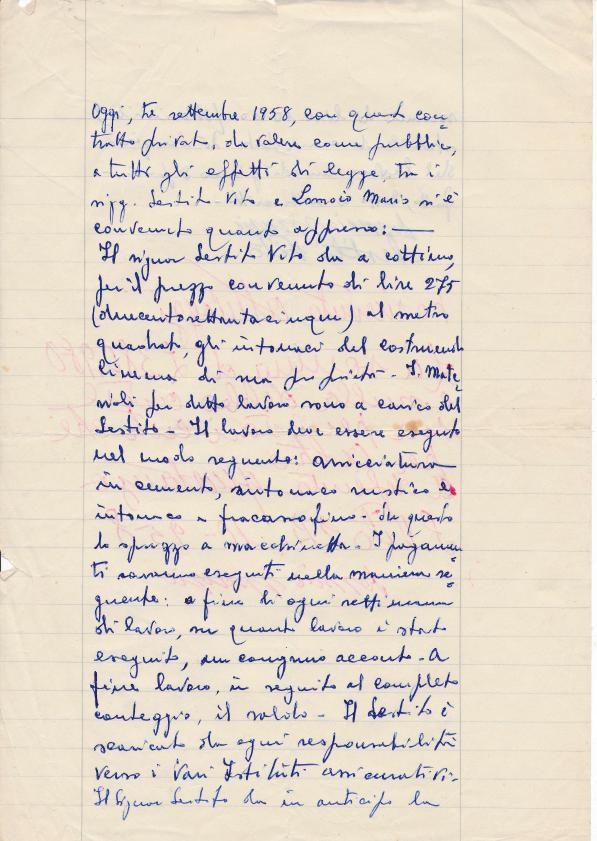 Oggi, tre settembre 1958, con questo con=
tratto privato, da valere come pubblico,
a tutti gli effetti di legge, tra i
sigg. Sestito Vito e Lomoio Mario si è
convenuto quanto appresso: —
Il signor Sestito Vito da a cottimo,
per il prezzo convenuto di lire 275
(duecentosettantacinque) al metro
quadrato, gli intonaci del costruendo
Cinema di sua proprietà - I Mate=
riali per detto lavoro sono a carico del
Sestito - Il lavoro deve essere eseguito
nel modo seguente: arricciatura
in cemento, intonaco rustico e
intonaco a fracasso fino - In questo
lo spruzzo a macchinetta - I pagamen
ti saranno eseguiti nella maniera se=
guente: a fine di ogni settimana
di lavoro, su quanto lavoro è stato
eseguito, un congruo acconto - A
fine lavoro, in seguito al completo
conteggio, il saldo - Il Sestito è
scaricato da ogni responsabilità
verso i vari Istituti assicurativi -
Il signor Sestito da in anticipo la